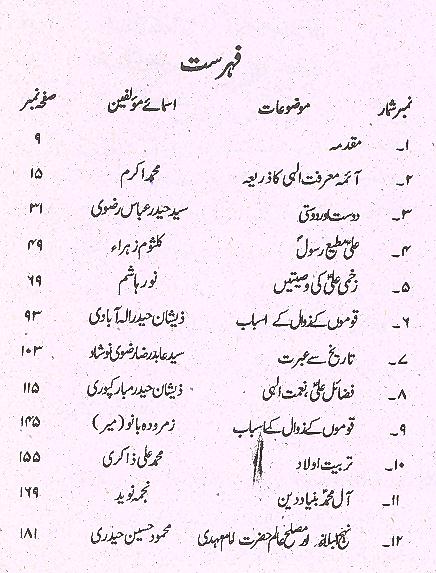 فہرست
نمبر شمار موضوعات اسمائے مؤلفین صفحہ نمبر
۱۔ مقدمہ ۹
۲۔ آئمہ معرفت الٰہی کا ذریعہ محمد اکرم ۱۵
۳۔ دوست اور دوستی سید حیدر عباس رضوی ۳۱
۴۔ علیؑ مطیع رسولؐ کلثوم زہراء ۴۹
۵۔ زخمی علیؑ کی وصیتیں نور ہاشم ۶۹
۶۔ قوموں کے زوال کے اسباب ذیشان حیدر الہ آبادی ۹۳
۷۔ تاریخ سے عبرت سید عابد رضا رضوی نوشاد ۱۰۳
۸۔ فضائل علیؑ، نعمت الٰہی ذیشان حیدر مبارکپوری ۱۱۵
۹۔ قوموں کے زوال کے اسباب زمرودہ بانو (میر) ۱۴۵
۱۰۔ تربیت اولاد محمد علی ذاکری ۱۵۵
۱۱۔ آل محمدؐ بنیاد دین نجمہ نوید ۱۶۹
۱۲۔ نہج البلاغہ اور مصلح عالم حضرت امام مہدی محمود حسین حیدری ۱۸۱